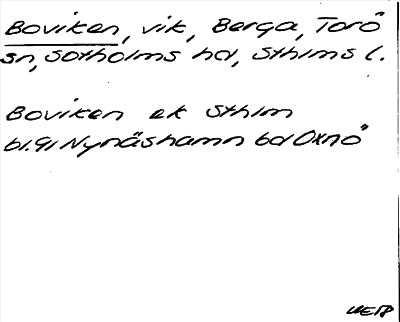 Boviken, vik, Berga, Torö
sn, Sotholms hd, Sthlms l.
Boviken ek Sthlm
bl. 91 Nynäshamn bd Oxnö